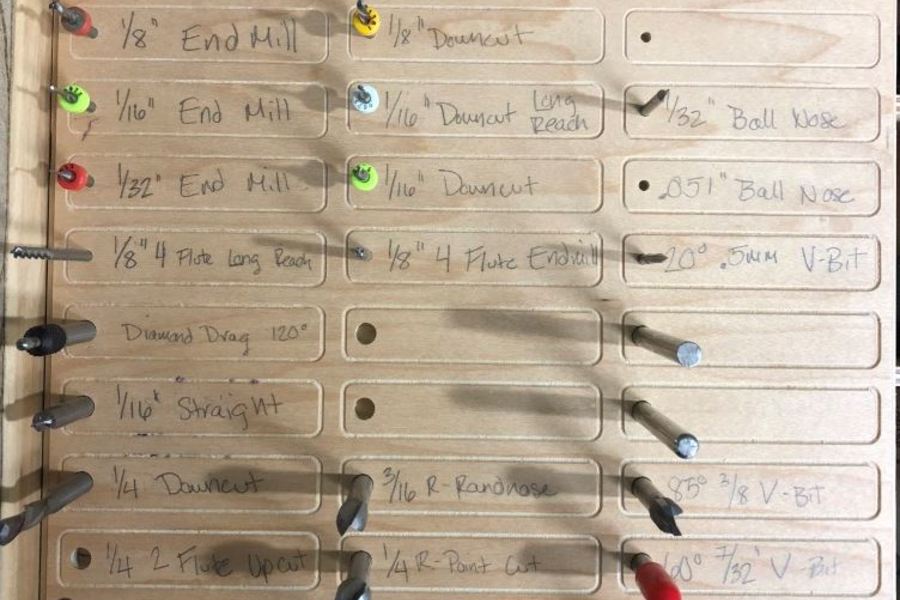 1/8" End Mill
1/8" Downcut
1/16" End Mill
1/16" Downcut Long Reach
1/32" Ball Nose
1/32" End Mill
1/16" Downcut
.051" Ball Nose
1/8" 4 Flute Long Reach
1/8" 4 Flute Endmill
20° .5mm V-Bit
Diamond Drag 120°
1/16" Straight
1/4 Downcut
3/16 R-Randnose
85° 3/8 V-Bit
1/4 2 Flute Upcut
1/4 R-Point Cut
60° 7/32" V-Bit